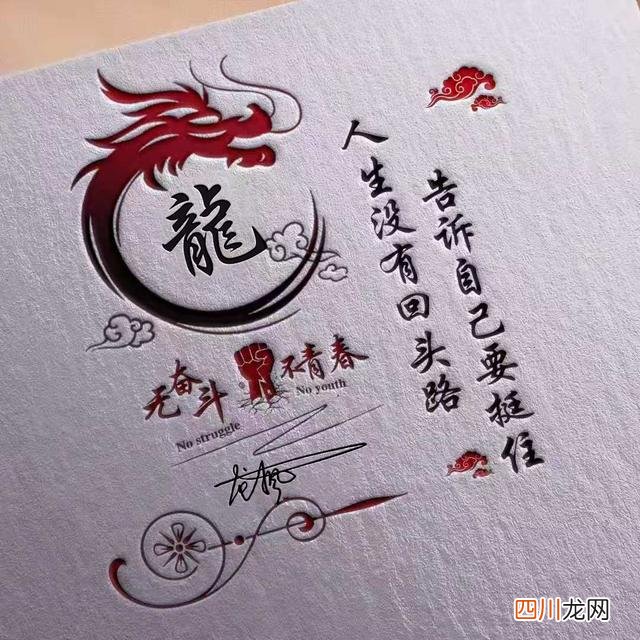 龍
告诉自己要挺住
人生没有回头路
无奋斗 不青春
No struggle No youth
四川龙网